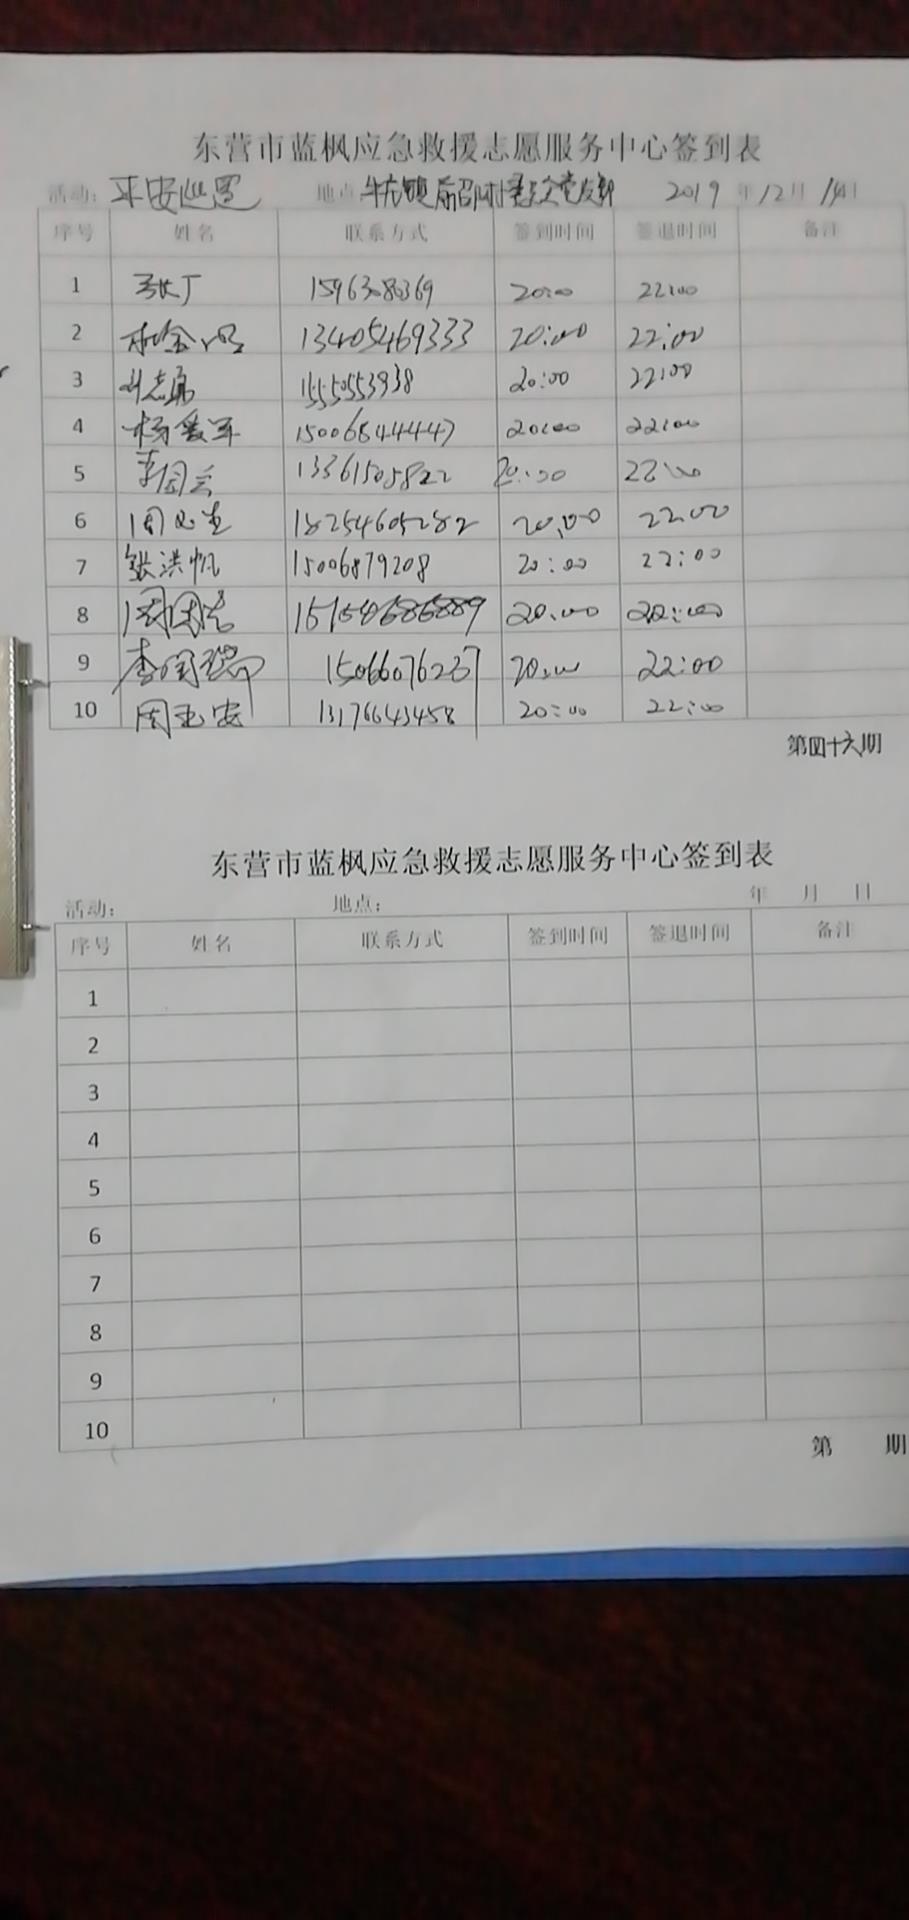 东营市蓝枫应急救援志愿服务中心签到表
活动: 平安巡逻 地点 2019 年 12 月 日
序号 姓名 联系方式 签到时间 签退时间 备注
1 张丁 20:00 22:00
2 13405469333 20:00 22:00
3 15550553938 20:00 22:00
4 杨爱军 15006844447 20:00 22:00
5 李同云 13361505822 20:00 22:00
6 18254605282 20:00 22:00
7 张洪帆 15006879208 20:00 22:00
8 20:00 22:00
9 15066076237 20:00 22:00
10 13176643458 20:00 22:00
第四十六期
东营市蓝枫应急救援志愿服务中心签到表
活动: 地点: 年 月 日
序号 姓名 联系方式 签到时间 签退时间 备注
1
2
3
4
5
6
7
8
9
10
第 期